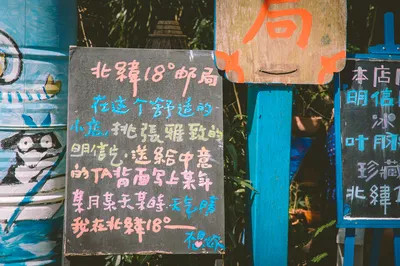 北緯18°邮局
在這个舒适的
小店,挑張雅致的
明信片,送給中意
的TA背面写上某年
某月某天某時,天气晴
我在北緯18°一
想你
局
本店
明信
冰
叶
珍藏
北緯